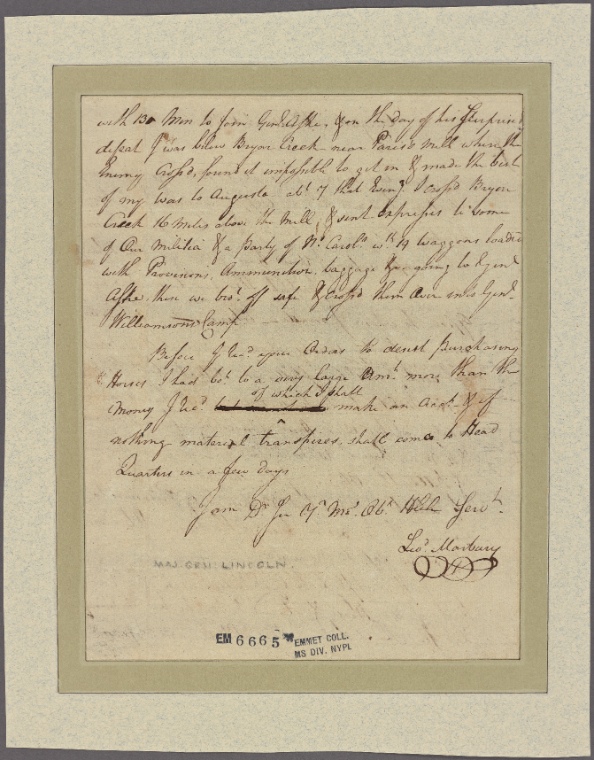 with 130 Men to Join Genl. Ashe, & on the day of his Surprise &
defeat I was below Bryer Creek near Parises Mill where the
Enemy Crossd, found it impossible to get in & made the best
of my way to Augusta abt. 7 that Eveng. I crossd Bryer
Creek 16 miles above the Mill, & sent expresses to some
of Our Militia & a party of No. Carola. wth. 19 waggons loaded
with Provisions, Ammunition, baggage &c going to Genl.
Ashe. these we bro't off safe & cross'd them over into Genl.
Williamsons Camp
Before I Recd. your Orders to desist Purchasing
Horses I had bot. to a very large Amt. more than the
Money I recd. of which I shall make an Acct. & if
nothing material transpires, shall come to Head
Quarters in a few days
I am Dr. Sir Yr. Mo. Obt. Hble Servt.
Leod. Marbury
MAJ GEN: LINCOLN.
EM 6665 EMMET COLL.
MS DIV. NYPL